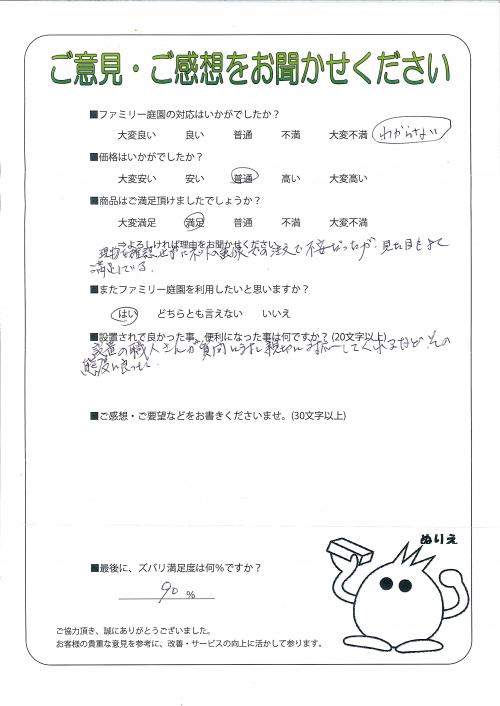 ご意見・ご感想をお聞かせください
■ファミリー庭園の対応はいかがでしたか？
大変良い 良い 普通 不満 大変不満 わからない
■価格はいかがでしたか？
大変安い 安い 普通 高い 大変高い
■商品はご満足頂けましたでしょうか？
大変満足 満足 普通 不満 大変不満
⇒よろしければ理由をお聞かせください
現物を確認せずにネットの画像での注文で不安だったが、見た目もよく
満足している。
■またファミリー庭園を利用したいと思いますか？
はい どちらとも言えない いいえ
■設置されて良かった事、便利になった事は何ですか？(20文字以上)
設置の職人さんが質問にも親切に対応してくれるなど、その
態度に良かった。
■ご感想・ご要望などをお書きくださいませ。(30文字以上)
ぬりえ
■最後に、ズバリ満足度は何％ですか？
90 %
ご協力頂き、誠にありがとうございました。
お客様の貴重な意見を参考に、改善・サービスの向上に活かして参ります。